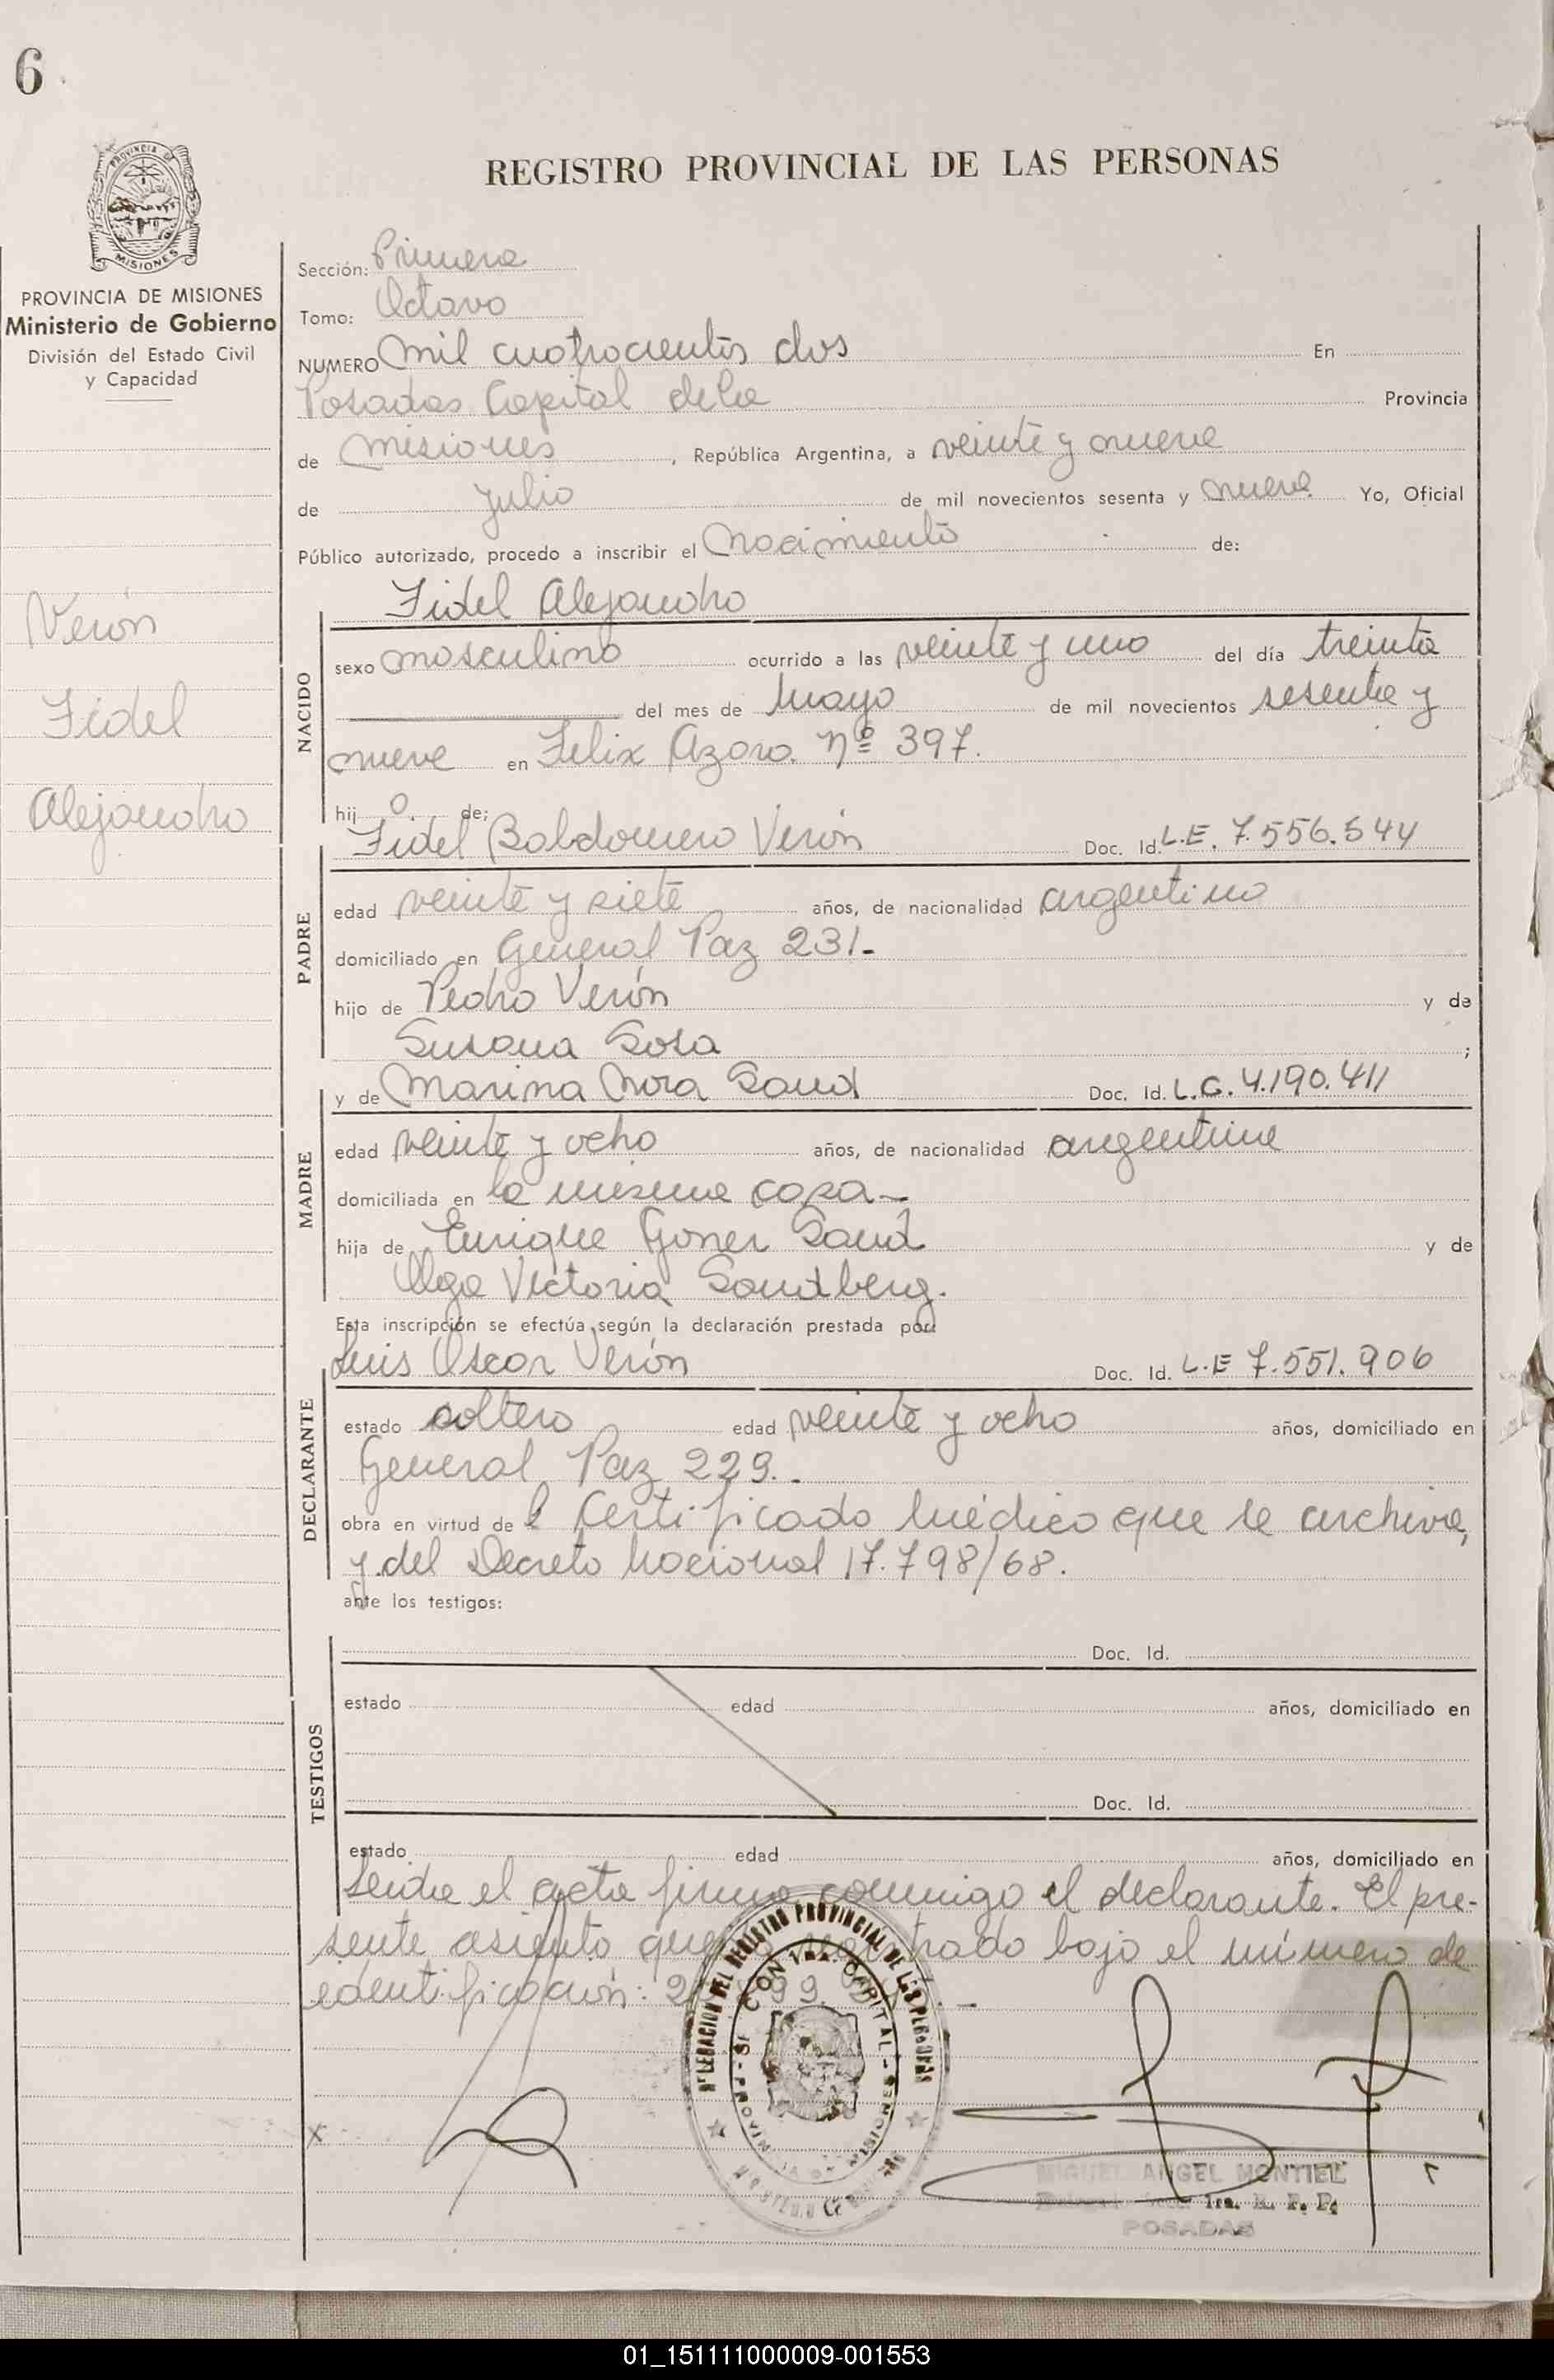 6
REGISTRO PROVINCIAL DE LAS PERSONAS
PROVINCIA DE
MISIONES
PROVINCIA DE MISIONES
Ministerio de Gobierno
División del Estado Civil
y Capacidad
Verón
Fidel
Alejandro
Sección: Primera
Tomo: Octavo
NUMERO Mil cuatrocientos dos En
Posadas Capital de la Provincia
de Misiones, República Argentina, a veinte y nueve
de Julio de mil novecientos sesenta y nueve Yo, Oficial
Público autorizado, procedo a inscribir el Nacimiento de:
Fidel Alejandro
NACIDO
sexo masculino ocurrido a las veinte y uno del día treinta
del mes de Mayo de mil novecientos sesenta y
nueve en Felix Azara Nº 397.
hij o de:
Fidel Baldomero Verón Doc. Id. L.E. 7.556.544
PADRE
edad veinte y siete años, de nacionalidad argentino
domiciliado en General Paz 231.-
hijo de Pedro Verón y de
Susana Sosa ;
y de Marina Nora Sand Doc. Id. L.C. 4.190.411
MADRE
edad veinte y ocho años, de nacionalidad argentina
domiciliada en la misma casa-
hija de Enrique Sand y de
Olga Victoria Sandberg.
Esta inscripción se efectúa según la declaración prestada por:
Luis Oscar Verón Doc. Id. L.E 7.551.906
DECLARANTE
estado soltero edad veinte y ocho años, domiciliado en
General Paz 229.-
obra en virtud de l Certificado Médico que se archiva,
y del Decreto Nacional 17.798/68.
ante los testigos:
Doc. Id.
TESTIGOS
estado edad años, domiciliado en
Doc. Id.
estado edad años, domiciliado en
Leida el acta firma conmigo el declarante. El pre-
sente asiento bajo el número de
identificación:
DELEGACION DEL REGISTRO PROVINCIAL DE LAS PERSONAS
CAPITAL - MISIONES
x
MIGUEL ANGEL MONTIEL
1ra. R. P. P.
POSADAS
01_151111000009-001553